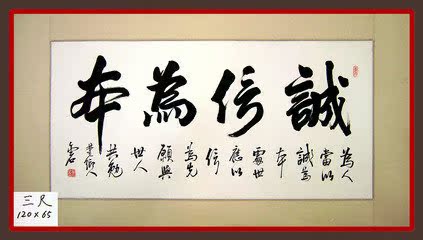 誠信為本
為人
當以
誠為
本
處世
應以
信
為先
願與
世人
共勉
三尺
120×65